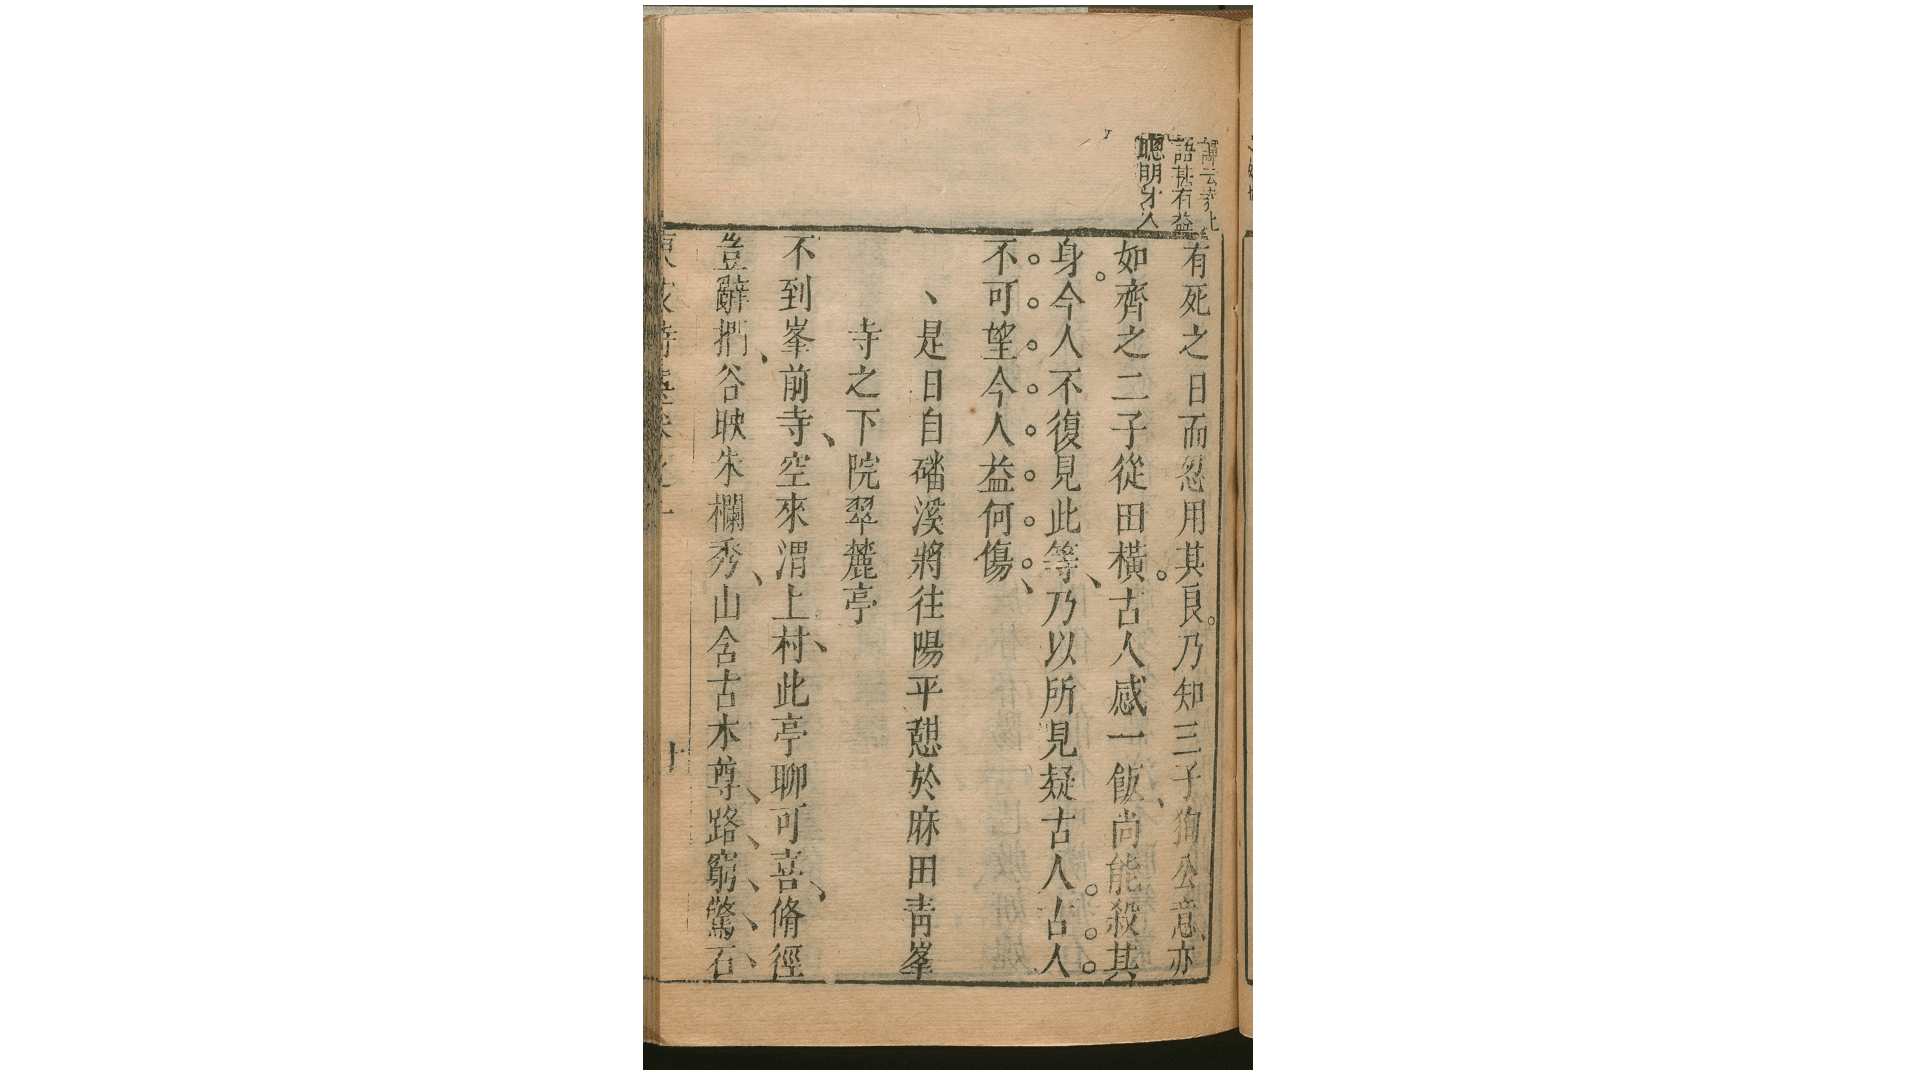 譚云此
語甚有益
聰明才人
有死之日而忍用其良乃知三子狥公意亦
如齊之二子從田橫古人感一飯尚能殺其
身今人不復見此等乃以所見疑古人古人
不可望今人益何傷
是日自磻溪將往陽平憩於麻田青峯
寺之下院翠麓亭
不到峯前寺空來渭上村此亭聊可喜脩徑
豈辭捫谷映朱欄秀山含古木尊路窮驚石
十